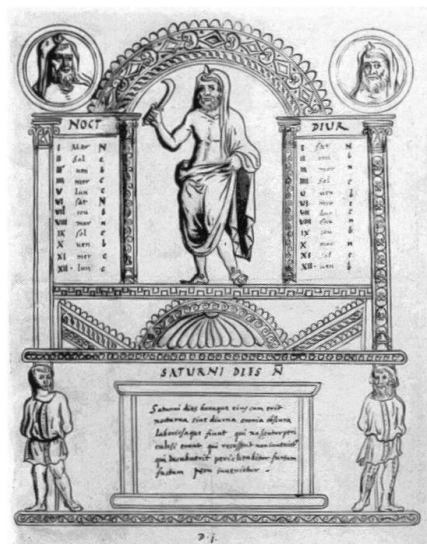 NOCT
I Mar N
II Sol c
uen b
mer c
V lun c
VI sat N
VII iou b
VIII mar n
IX sol c
X uen b
XI mer c
XII lun c
DIUR
I sat N
II iou b
mar n
sol c
V uen b
VI mer c
VII lun c
VIII sat n
IX iou b
X mar n
XI sol c
XII uen b
SATURNI DIES N
Saturni dies horaque eius cum erit
nocturna siue diurna omnia obscura
laboriosaque fiunt qui nascentur peri
culosi erunt qui recesserit non
qui decubuerit periclitabitur furtum
factum inuenietur